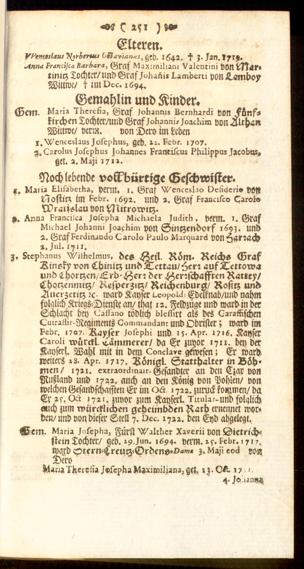 ( 251 )
Elteren.
Wenceslaus Norbertus Octavianus, geb. 1642. † 3. Jan. 1719.
Anna Francisca Barbara, Graf Maximiliani Valentini von Mar-
tinitz Tochter/ und Graf Johañis Lamberti von Lamboy
Wittwe/ † im Dec. 1694.
Gemahlin und Kinder.
Gem. Maria Theresia, Graf Johannis Bernhardi von Fünf-
kirchen Tochter/ und Graf Johannis Joachim von Althan
Wittwe/ verm. von Dero im Leben
1. Wenceslaus Josephus, geb. 21. Febr. 1707.
2. Carolus Josephus Johannes Frantiscus Philippus Jacobus,
get. 2. Maji 1712.
Noch lebende vollbürtige Geschwister.
1. Maria Elisabetha, verm. 1. Graf Wenceslao Desiderio von
Nostitz im Febr. 1692. und 2. Graf Francisco Carolo
Wratislau von Mitrowitz.
2. Anna Francisca Josepha Michaela Judith, verm. 1. Graf
Michael Johanni Joachim von Sintzendorf 1693. und
2. Graf Ferdinando Carolo Paulo Marquard von Harrach
2. Jul. 1711.
3. Stephanus Wilhelmus, des Heil. Röm. Reichs Graf
Kinsky von Chinitz und Tettau/ Herr auf Tettowa
und Chortzen/ Erb-Herr der Herrschafften Ratey/
Chotzenmitz/ Kesperzitz/ Reichenburg/ Rositz und
Auerzetitz &c. ward Kayser Leopoldi Edelknab/ und nahm
folglich Kriegs-Dienst an/ that 12. Feldzüge und ward in der
Schlacht bey Cassano tödlich blessirt als des Garaffischen
Cuirassir-Regiments Commandant und Obrister; ward im
Febr. 1707. Kayser Josephi und 15. Apr. 1716. Kayser
Caroli würckl. Cämmerer/ da Er zuvor 1711. bey der
Kayserl. Wahl mit in dem Conclave gewesen; Er ward
weiters 28. Apr. 1717. Königl. Statthalter in Böh-
men/ 1721. extraordinair-Gesandter an den Czar von
Rußland und 1722. auch an den König von Pohlen/ von
welchen Gesandschafften Er im Oct. 1722. zuruck kommen/ da
Er 25. Oct 1721. zuvor zum Kayserl. Titular- und folglich
auch zum würcklichen geheimbden Rath ernennet wor-
den/ und von dieser Stell 7. Dec. 1722. den Eyd abgelegt.
Gem. Maria Josepha, Fürst Walther Xaverii von Dietrich-
stein Tochter/ geb. 29. Jun. 1694. verm. 25. Febr. 1717.
ward Stern-Creutz-Ordens-Dame 3. Maji eod von
Dero
Maria Theresia Josepha Maximiliana, get. 13. Oct.
4. Johanna